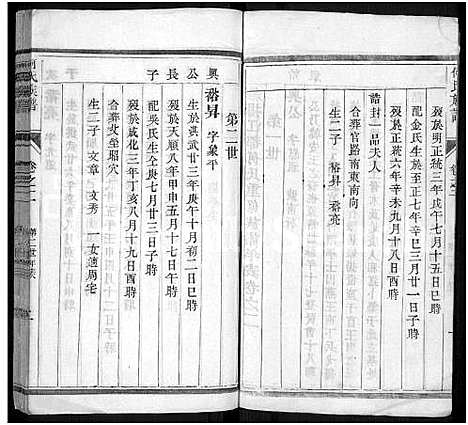 何氏族譜
卷之二
一
歿於明正統三年戊午七月十五日巳時
配金氏生於至正七年辛巳三月廿一日子時
歿於正統六年辛未九月十八日酉時
誥封一品夫人
合葬官路南東南向
生二子 㵒昇 㵒亮
第二世
興 㵒昇 字象平
公 生於洪武廿三年庚午十月初二日巳時
長 歿於天順八年甲申五月十七日午時
公 配吳氏生仝庚七月廿三日子時
子 歿於成化三年丁亥八月十九日酉時
合葬父塋昭穴
生二子 文章 文秀 一女適周宅
何氏族譜
卷之二
第二世年表
二